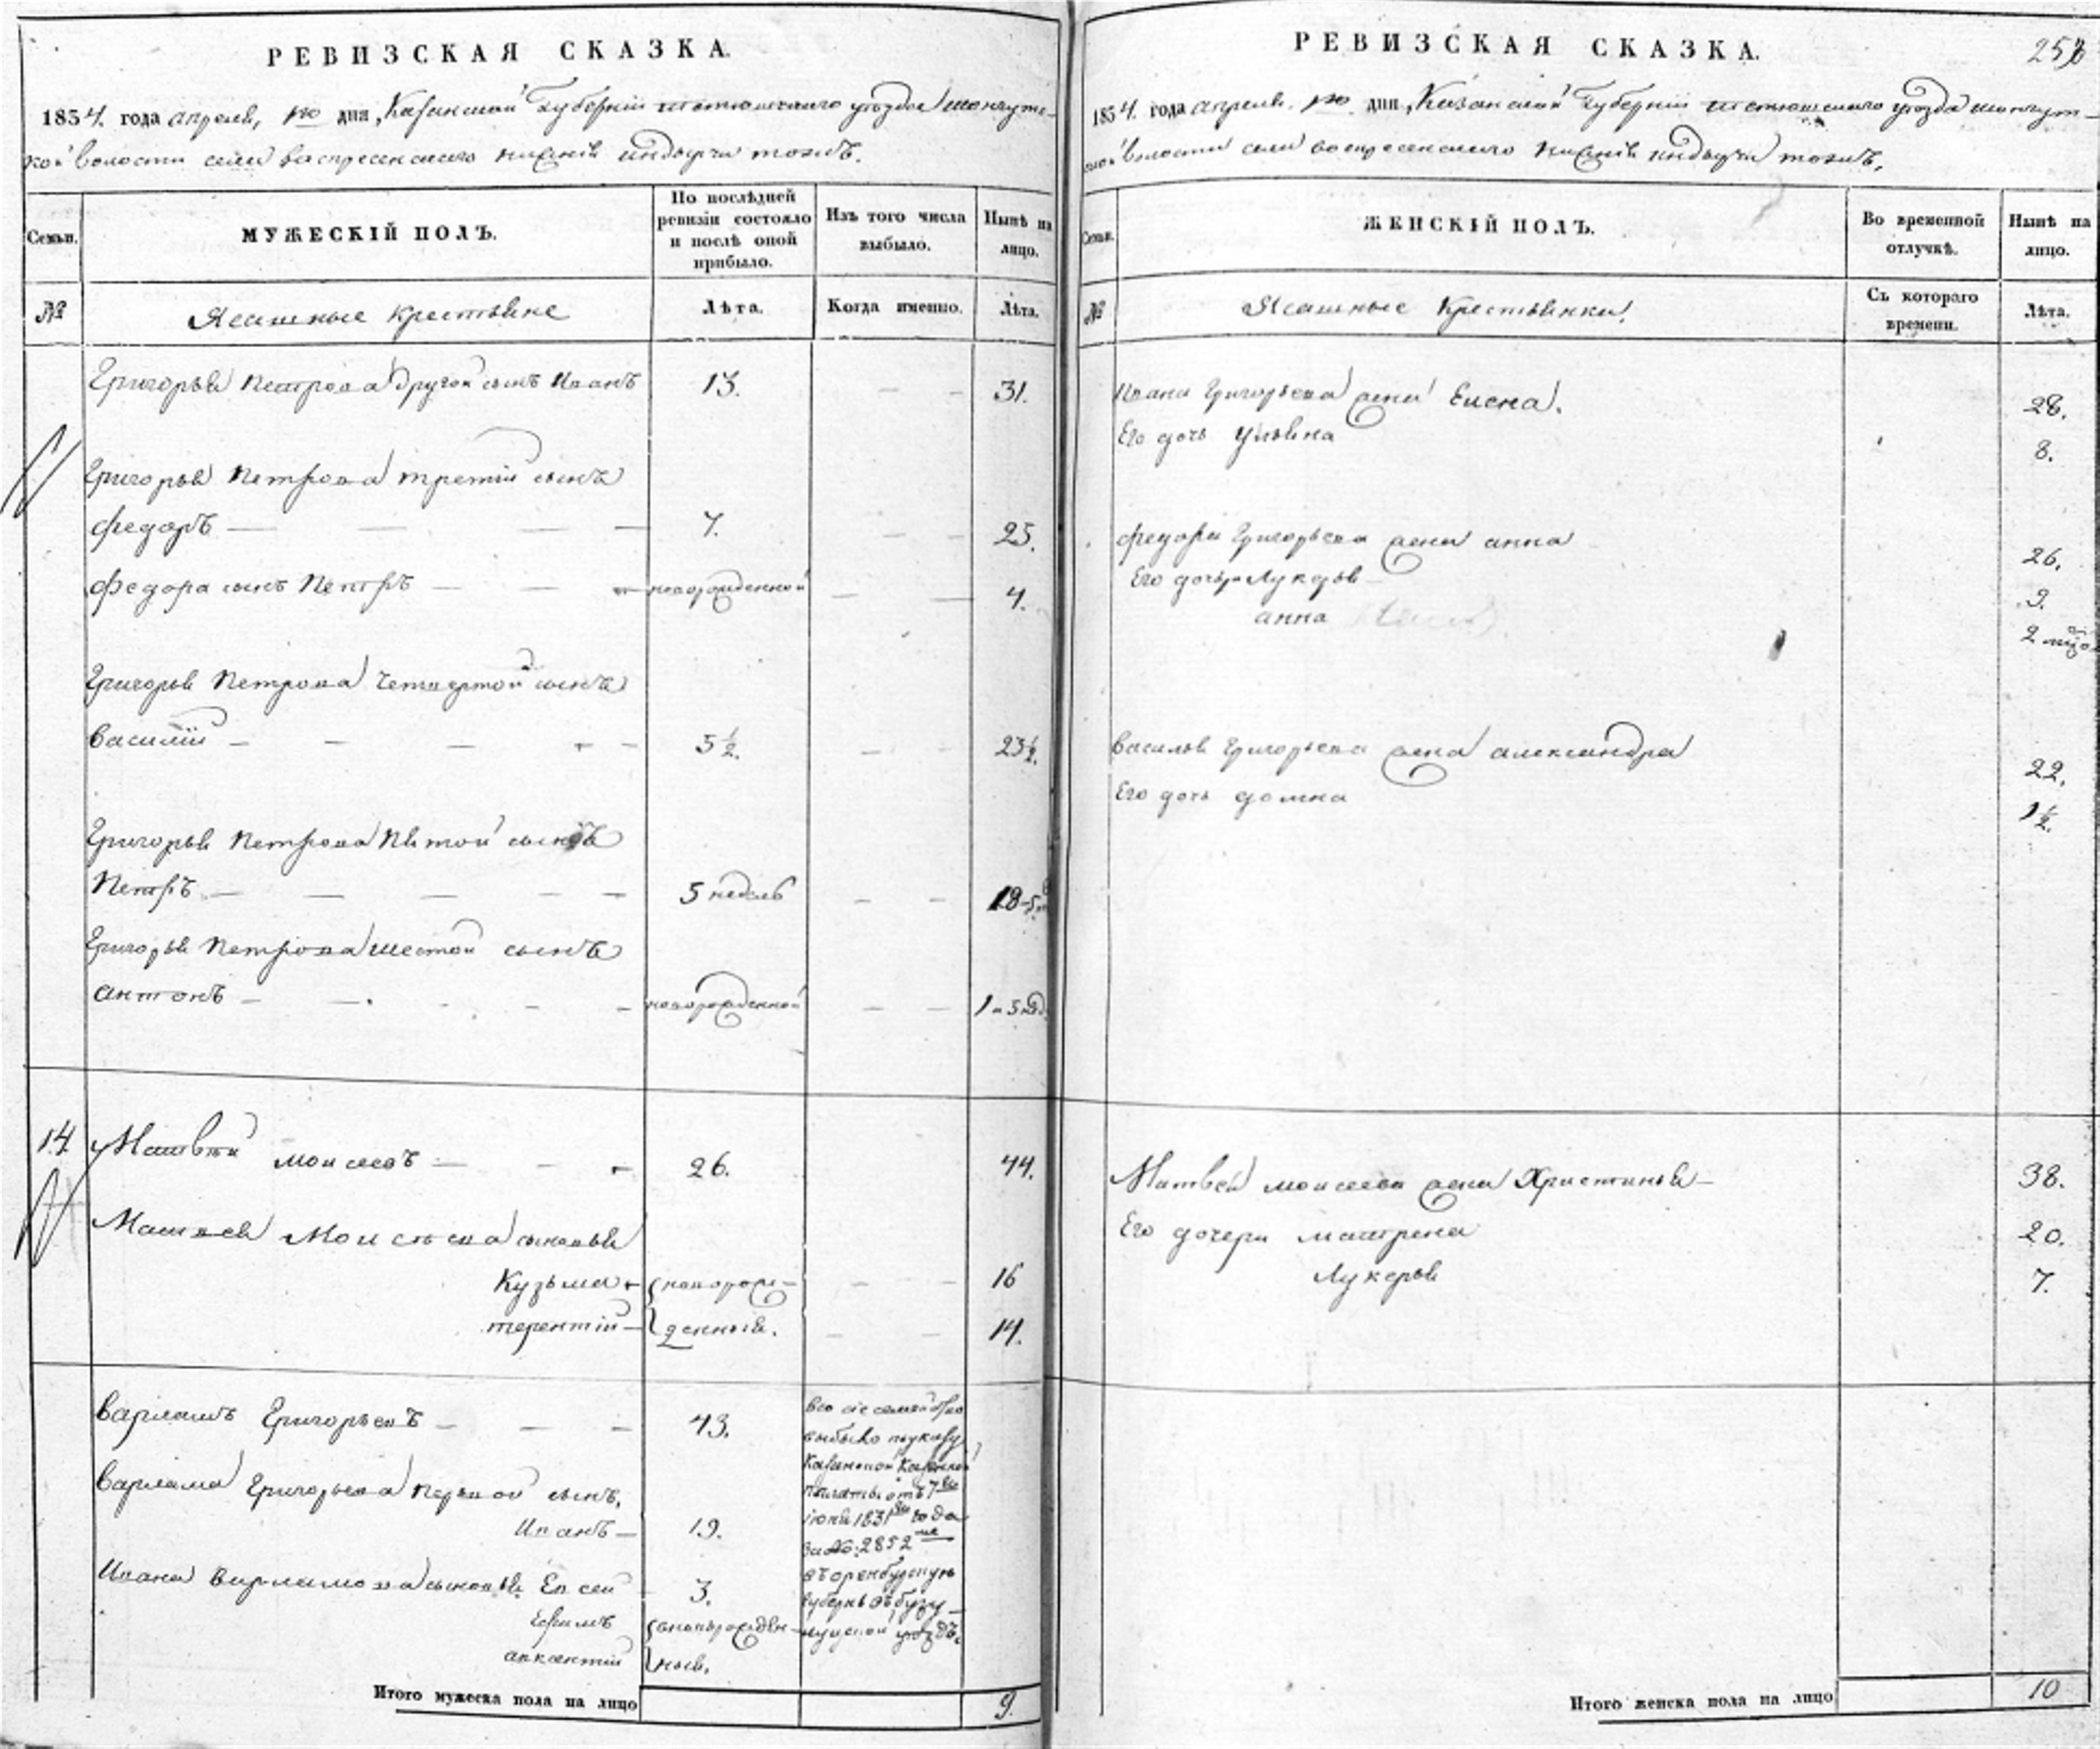 РЕВИЗСКАЯ СКАЗКА.
1834. года апреля, дня, Казанской Губернии уезда
волости села воскресенского тожъ.
Семьи.
МУЖЕСКІЙ ПОЛЪ.
По послѣдней
ревизіи состояло
и послѣ оной
прибыло.
Изъ того числа
выбыло.
Нынѣ на
лицо.
№
Ясашные крестьяне
Лѣта.
Когда именно.
Лѣта.
Григорья Петрова другой сынъ Иванъ 13. 31.
Григорья Петрова третiй сынъ
Федоръ 7. 25.
Федора сынъ Петръ новорожденной 4.
Григорья Петрова четвертой сынъ
Василiй 5½. 23½.
Григорья Петрова пятой сынъ
Петръ 5 недель 18
Григорья Петрова шестой сынъ
антонъ новорожденной
14 Матвѣй моисеевъ 26. 44.
Матвея Моисеева сыновья
Кузьма новорож- 16
терентiй денныя. 14.
варламъ Григорьевъ 43.
варлама Григорьева первой сынъ.
Иванъ 19.
Ивана Варламова сыновья Евсей 3.
Ефимъ
авксентiй
все сие семейство
выбыло по указу
Казанской Казенной
палаты отъ 7го
июня 1831го года
за № 2852
въ оренбургскую
губернiю въ бузу-
лукской уездъ.
Итого мужеска пола на лицо 9.
РЕВИЗСКАЯ СКАЗКА.
1834. года апреля. дня, Казанской Губернии уезда
волости села воскресенского тожъ,
Семьи.
ЖЕНСКІЙ ПОЛЪ.
Во временной
отлучкѣ.
Нынѣ на
лицо.
№
Ясашные Крестьянки.
Съ котораго
времени.
Лѣта.
Ивана Григорьева жена Елена. 28.
Его дочь ульяна 8.
Федора Григорьева жена анна 26.
Его дочери Лукерья 9.
анна 2
Василья Григорьева жена александра 22.
Его дочь домна 1½.
Матвея моисеева жена Христинья 38.
Его дочери матрена 20.
Лукерья 7.
Итого женска пола на лицо 10